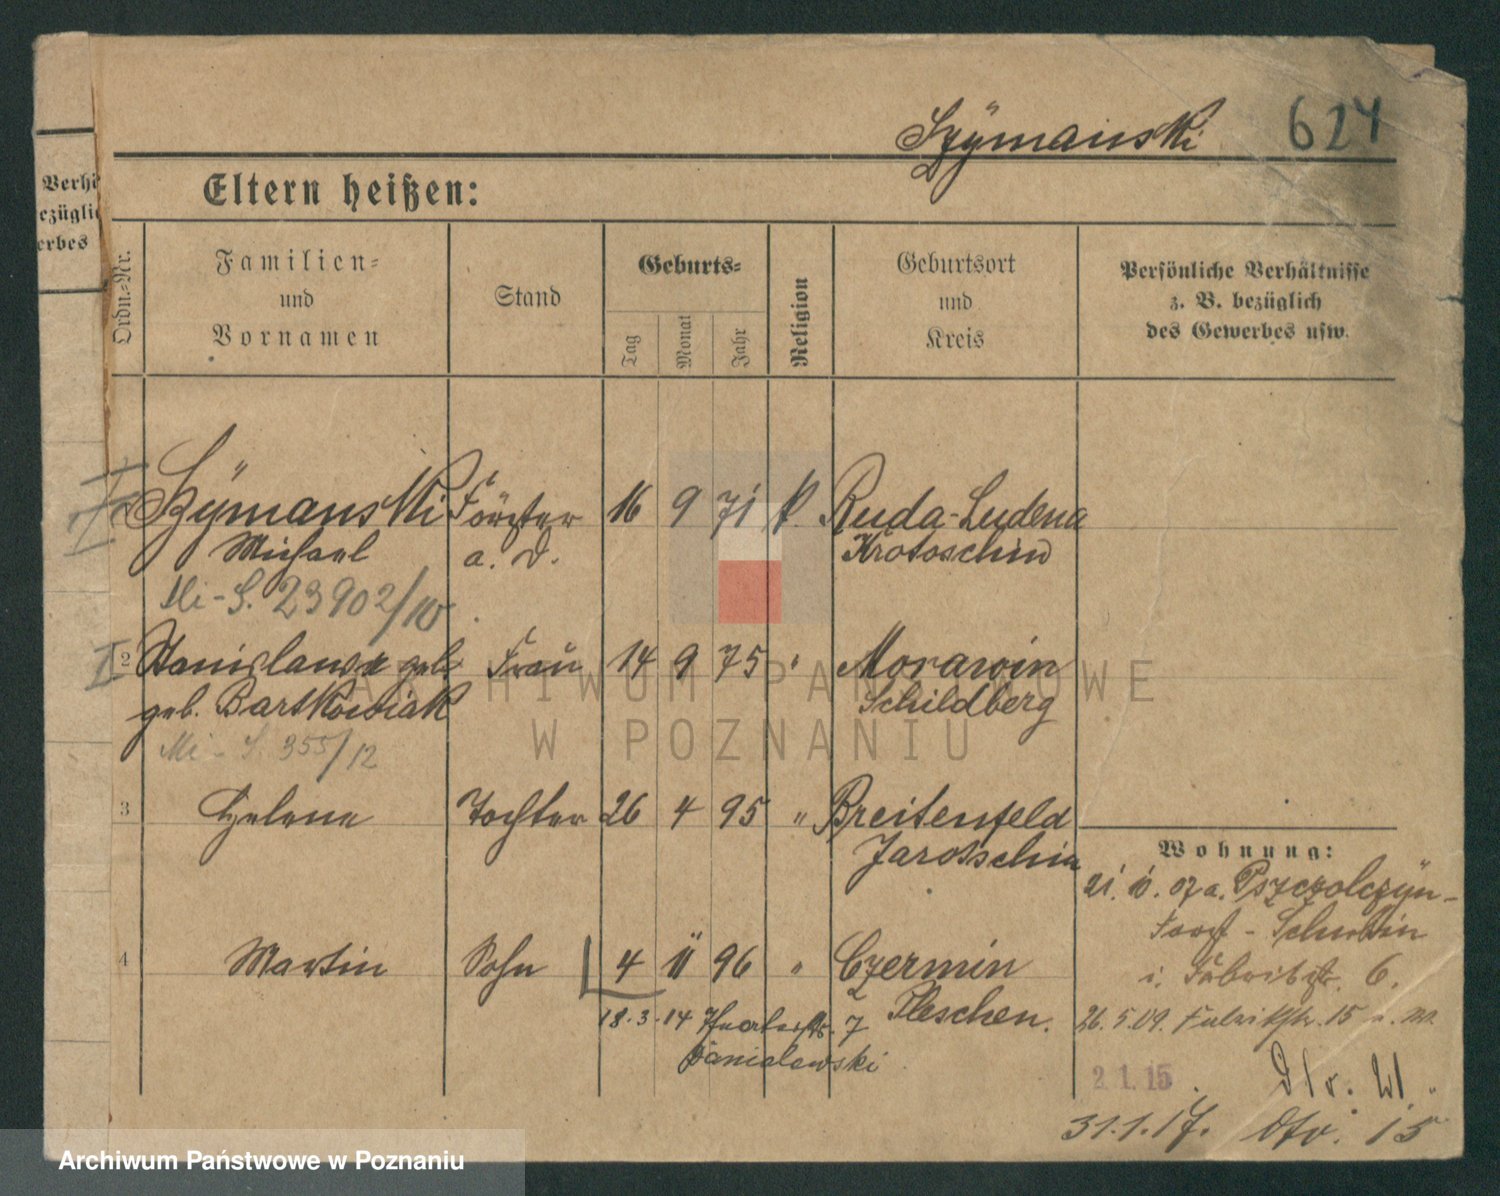 Szÿmanski 624
Verhä
ezüglich
erbes
Eltern heißen:
Ordn.-Nr.
Familien-
und
Vornamen
Stand
Geburts-
Tag
Monat
Jahr
Religion
Geburtsort
und
Kreis
Persönliche Verhältnisse
z. B. bezüglich
des Gewerbes usw.
Szÿmanski Förster 16 9 71 k. Ruda-Ludena
Michael a. D. Krotoschin
Mi-S. 23902/10
2 Stanislawa geb. Frau 14 9 75 " Morawin
geb. Bartkowiak Schildberg
Mi-S. 355/12
3 Helene Tochter 26 4 95 " Breitenfeld
Jarotschin
Wohnung:
Pszczolczÿn-
4 Martin Sohn 4 11 96 " Czermin
Schubin
i. Fabrikstr. 6.
18.3.14 7 Pleschen.
Danielewski
26.5.09. Fabrikstr. 15
2.1.15
31.1.17. 15
ARCHIWUM PAŃSTWOWE
W POZNANIU
Archiwum Państwowe w Poznaniu